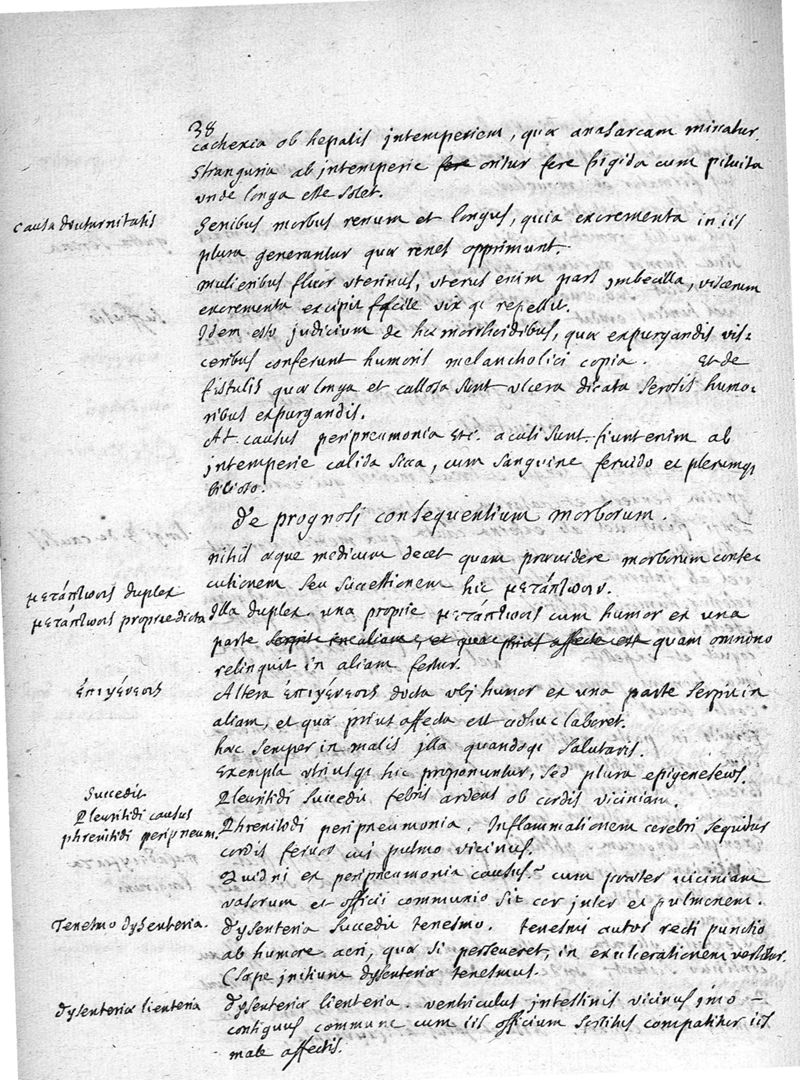 38
cachexia ob hepatis jntemperiem, quæ anasarcam minatur.
Stranguria ab jntemperie fere oritur fere frigida cum pituita
vnde longa esse solet.
Causa diuturnitatis
Senibus morbus renum et longus, quia excrementa in iis
plura generantur quæ renes opprimunt.
mulieribus fluor vterinus, vterus enim pars jmbecilla, viscerum
excrementa excipit facile vix qȝ repellit.
Idem esto judicium de hæmorrhoidibus, quæ expurgandis vis=
ceribus conferunt humoris melancholici copia. Et de
fistulis quæ longa et callosa sunt vlcera dicata serosis humo-
ribus expurgandis.
At causus peripneumonia etc. acuti sunt. fiunt enim ab
jntemperie calida sicca, cum sanguine feruido et plerumqȝ
bilioso.
De prognosi consequentium morborum.
nihil æque medicum decet quam præuidere morborum conse-
cutionem seu successionem hic μετάπτωσιν.
μετάπτωσις duplex
μετάπτωσις proprae dicta
Illa duplex. una proprie μετάπτωσις cum humor ex una
parte serpit in aliam, et quæ prius affecta est quam omnino
relinquit in aliam fertur.
ἐπιγένεσις
Altera ἐπιγένεσις dicta vbj humor ex una parte serpit in
aliam, et quæ prius affecta est adhuc laboret.
hæc semper in malis jlla quandoqȝ salutaris.
Exempla vtriusqȝ hic proponuntur, sed plura epigenesews.
Succedit
Pleuritidi causus
Pleuritidi succedit febris ardens ob cordis viciniam.
phrenitidi peripneum.
Phrenitidi peripneumonia. Inflammationem cerebri sequitur
cordis feruor cuj pulmo vicinus.
Quidni ex peripneumonia causus? cum præter viciniam
vasorum et officii communio sit cor jnter et pulmonem.
Tenesmo dysenteria.
Dysenteria succedit tenesmo. tenesmi autor recti punctio
ab humore acri, quæ si perseueret, in exulcerationem vertitur.
(sæpe jnitium dysenteriæ tenesmus.
dysenteriæ lienteria
Dysenteriæ lienteria. ventriculus jntestinis vicinus jmo -
contiguus commune cum iis officium sortitus compatitur iis
male affectis.